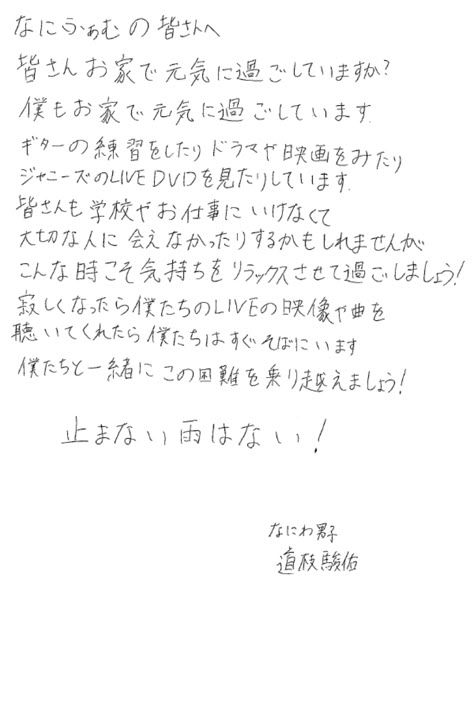 なにふぁむの皆さんへ
皆さんお家で元気に過ごしていますか?
僕もお家で元気に過ごしています.
ギターの練習をしたりドラマや映画をみたり
ジャニーズのLIVE DVDを見たりしています.
皆さんも学校やお仕事にいけなくて
大切な人に会えなかったりするかもしれませんが
こんな時こそ気持ちをリラックスさせて過ごしましょう!
寂しくなったら僕たちのLIVEの映像や曲を
聴いてくれたら僕たちはすぐそばにいます
僕たちと一緒にこの困難を乗り越えましょう!
止まない雨はない!
なにわ男子
道枝駿佑